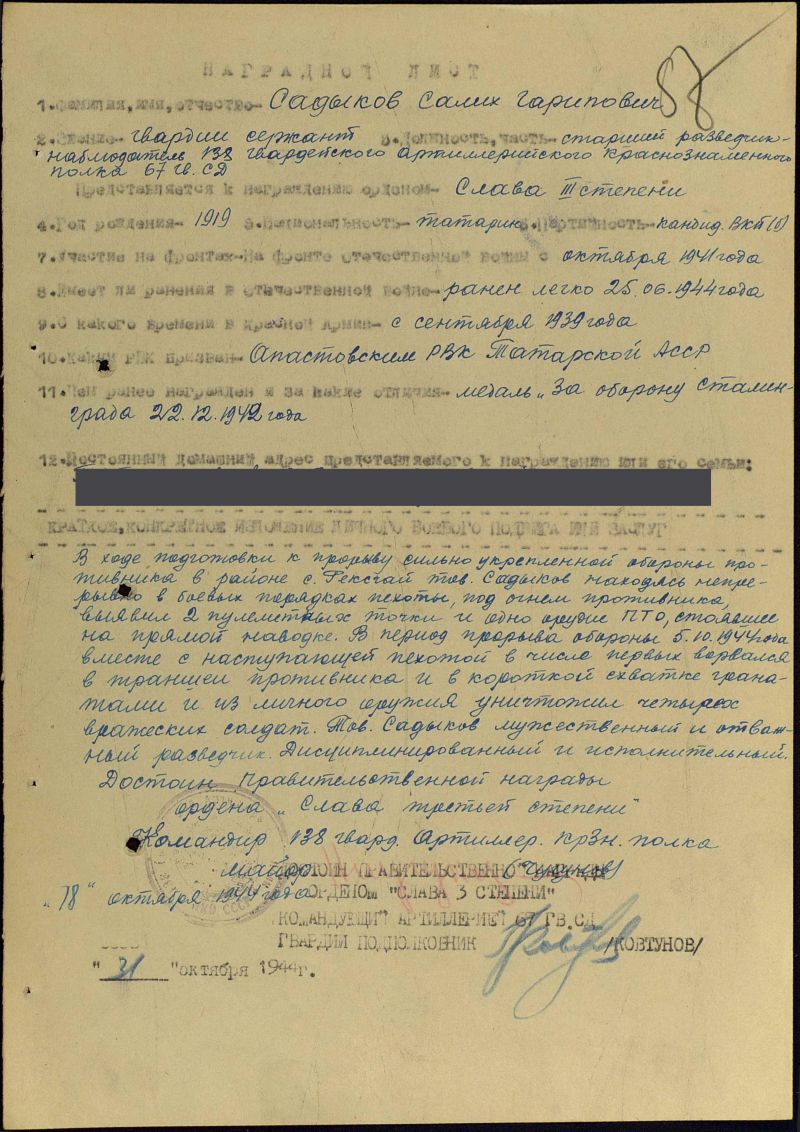 НАГРАДНОЙ ЛИСТ
58
1.Фамилия,имя,отчество- Садыков Салих Гарипович
2.Звание- гвардии сержант 3.Должность,часть- старший разведчик-
наблюдатель 138 гвардейского артиллерийского Краснознаменного
полка 67 гв. СД
Представляется к награждению орденом- Слава III степени
4.Год рождения- 1919 5.Национальность- татарин 6.Партийность- кандид. ВКП(б)
7.Участие на фронтах-На фронте отечественной войны с октября 1941 года
8.Имеет ли ранения в отечественной войне- ранен легко 25.06.1944 года
9.С какого времени в красной Армии- с сентября 1939 года
10.Каким РВК призван- Апастовским РВК Татарской АССР
11.Чем ранее награжден и за какие отличия- медаль „За оборону Сталин-
града 22.12.1942 года
12.Постоянный домашний адрес представляемого к награждению или его семьи:
КРАТКОЕ,КОНКРЕТНОЕ ИЗЛОЖЕНИЕ ЛИЧНОГО БОЕВОГО ПОДВИГА ИЛИ ЗАСЛУГ
В ходе подготовки к прорыву сильно укрепленной обороны про-
тивника в районе с. тов. Садыков находясь непре-
рывно в боевых порядках пехоты, под огнем противника,
выявил 2 пулеметных точки и одно орудие ПТО, стоявшее
на прямой наводке. В период прорыва обороны 5.10.1944 года
вместе с наступающей пехотой в числе первых ворвался
в траншеи противника и в короткой схватке грана-
тами и из личного оружия уничтожил четырех
вражеских солдат. Тов. Садыков мужественный и отваж-
ный разведчик. Дисциплинированный и исполнительный.
Достоин Правительственной награды
ордена „Слава третьей степени"
Командир 138 гвард. Артиллер. КрЗн. полка
майор
ДОСТОИН ПРАВИТЕЛЬСТВЕННО
„18" октября 1944 года
ОРДЕНОМ "СЛАВА 3 СТЕПЕНИ"
КОМАНДУЮЩИЙ АРТИЛЛЕРИЕЙ 67 ГВ.СД
ГВАРДИИ ПОДПОЛКОВНИК /КОВТУНОВ/
"31"октября 1944г.